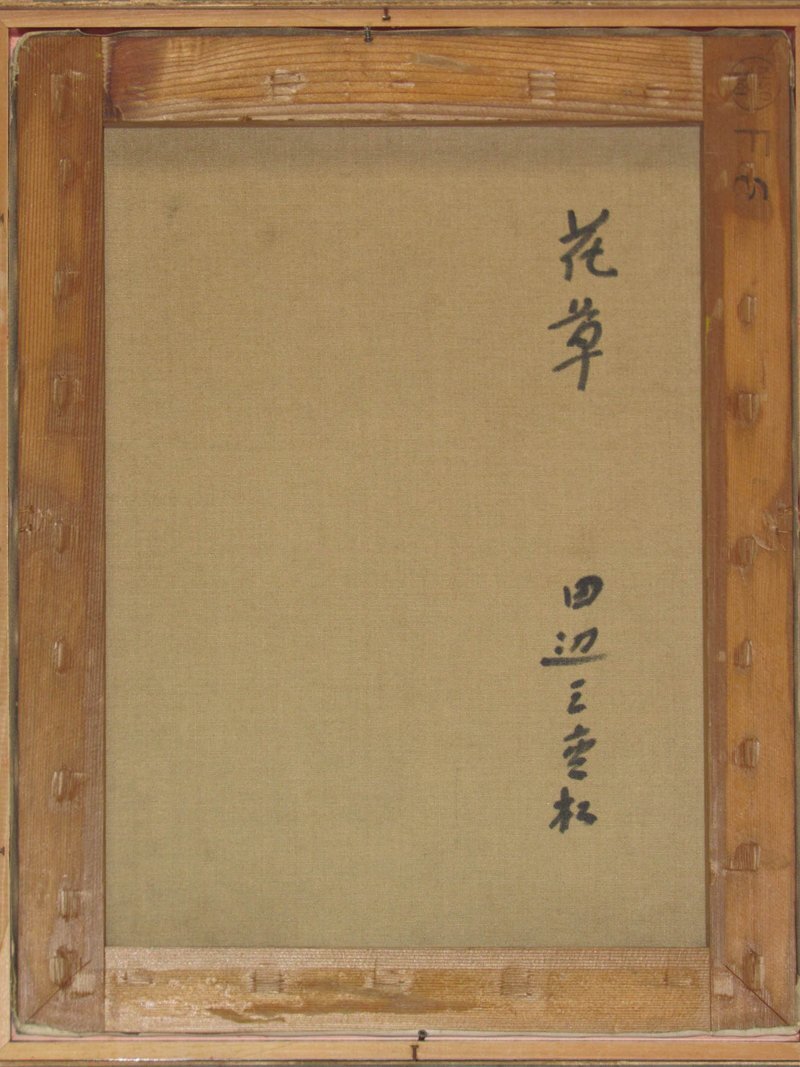 花草
田辺三重松